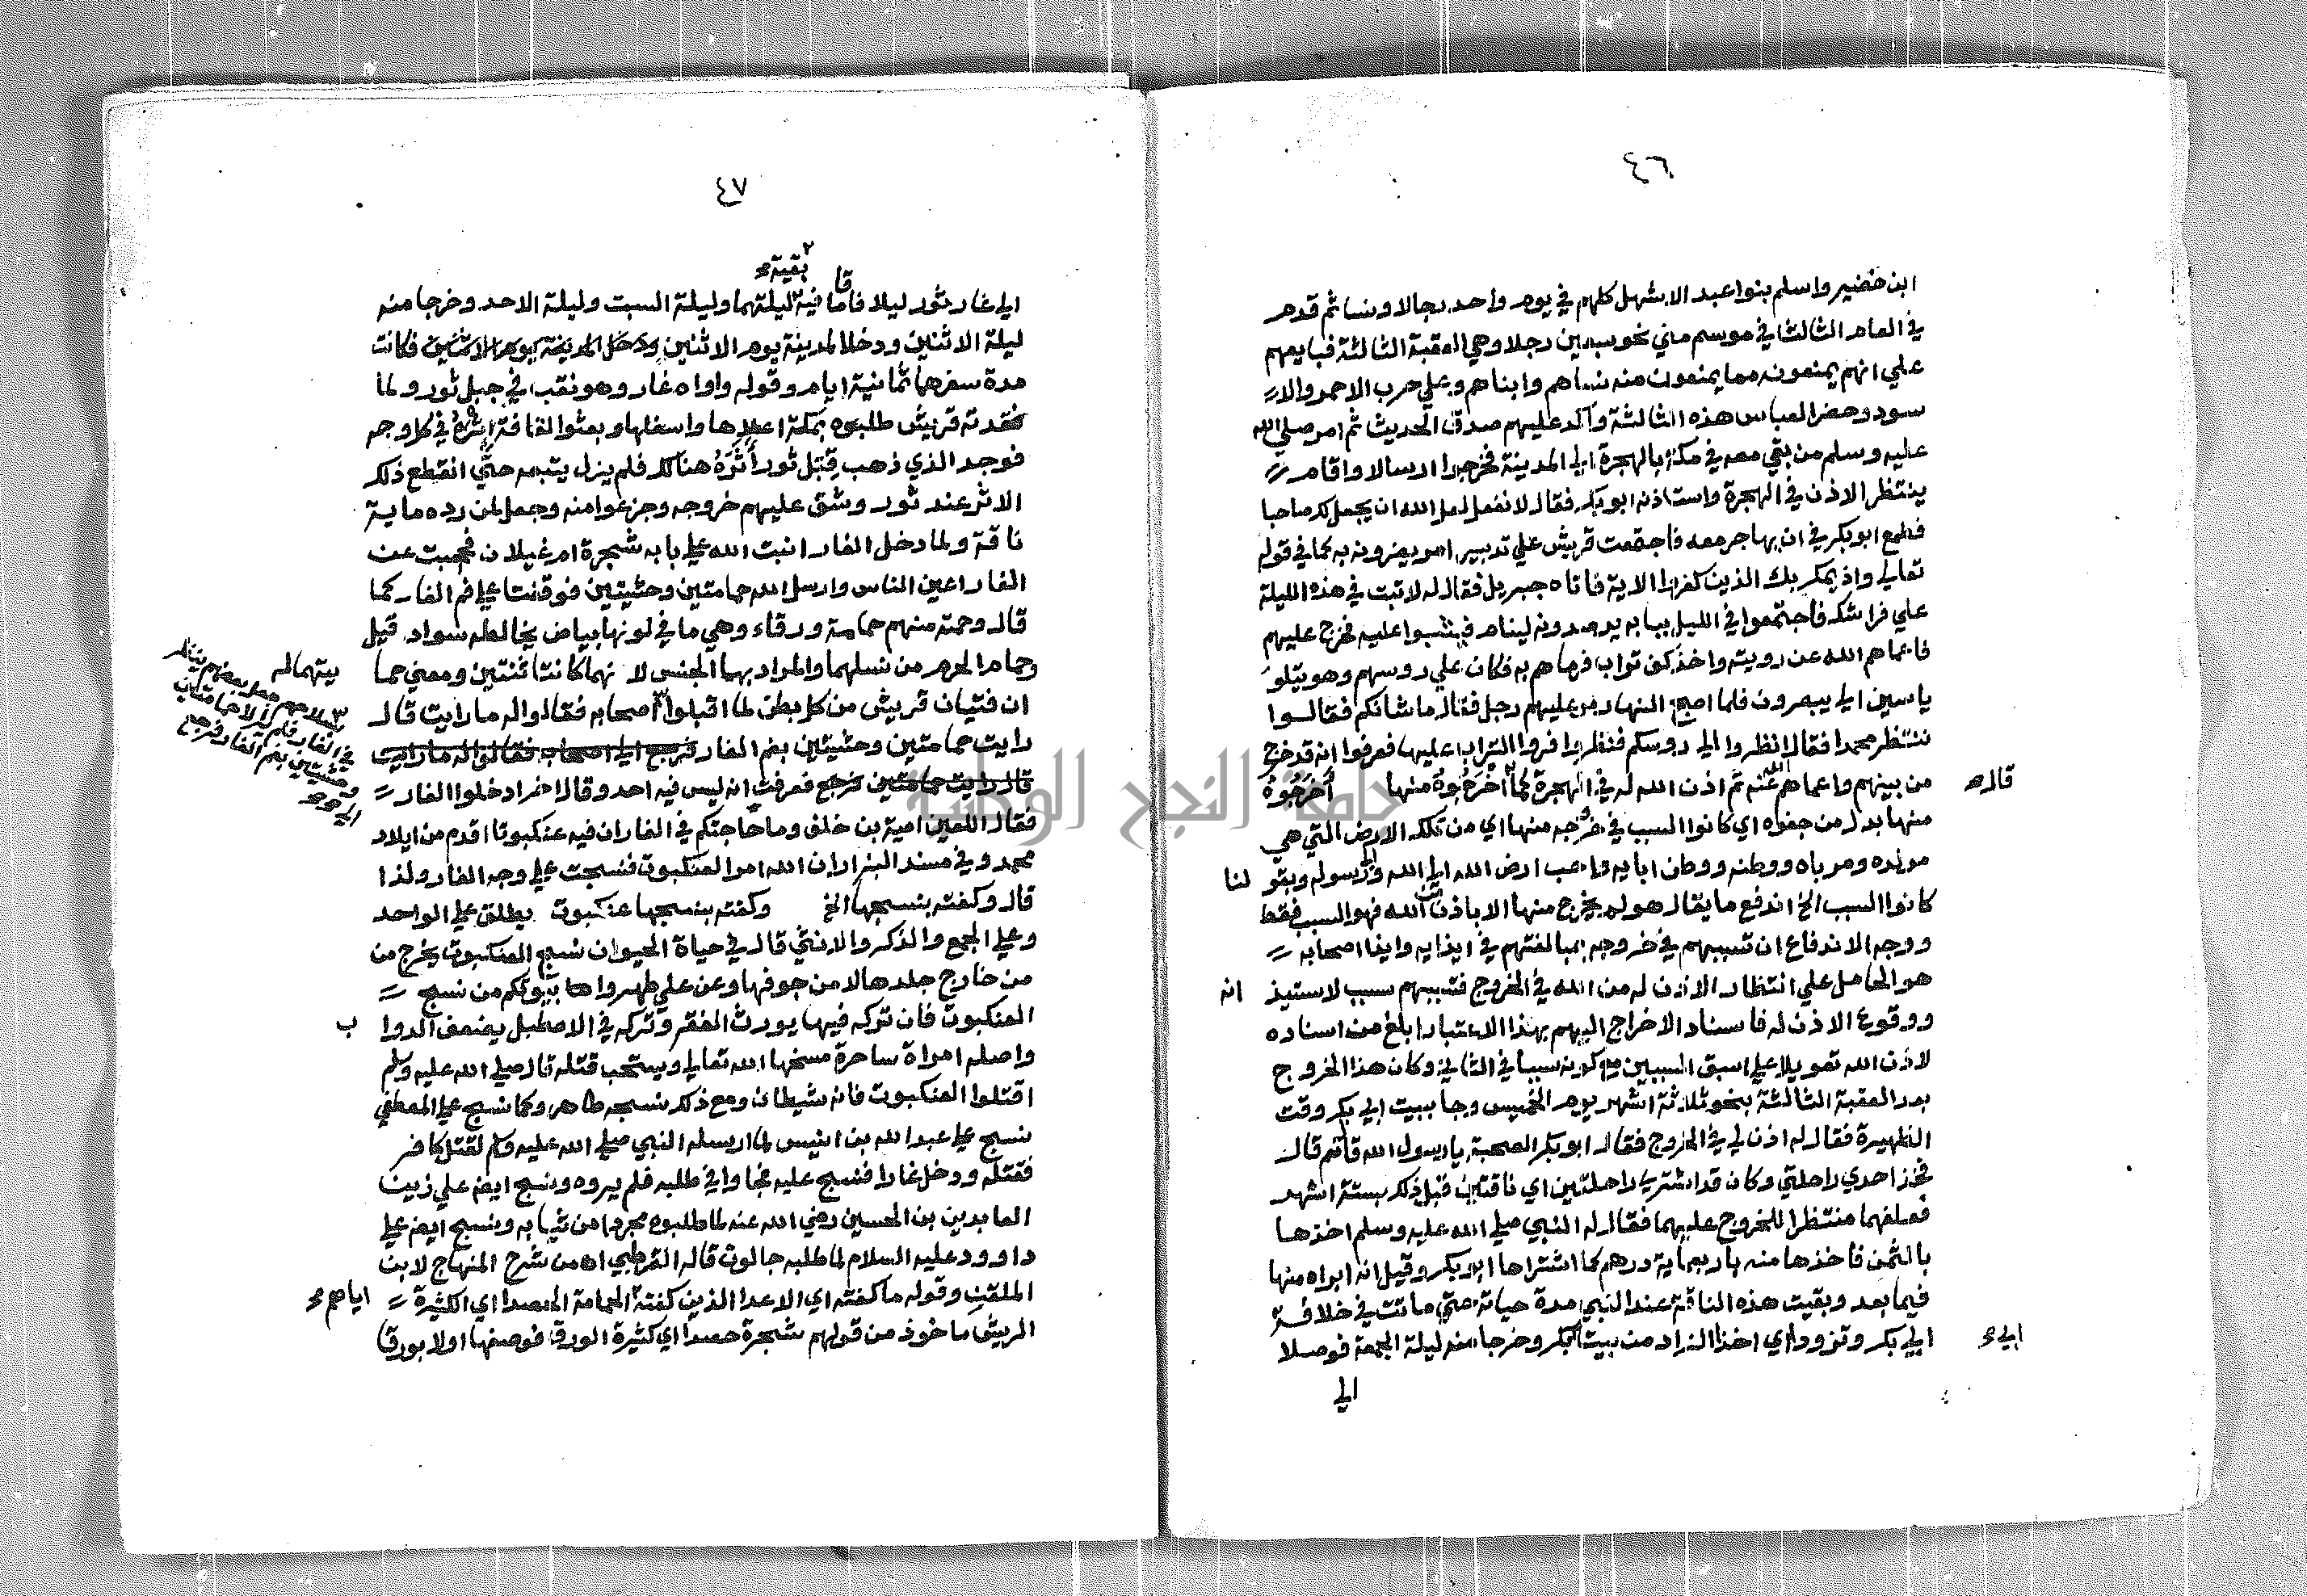 ٤٦
ابن خضير واسلم بنوا عبد الاشهل كلهم في يوم واحد رجالا ونسا ثم قدم
في العام الثالث في موسم مني نحو سبعين رجلا وهي العقبة الثالثة فبايعهم
علي انهم يمنعونه مما يمنعون منه نساهم وابناهم وعلي حرب الاحمر والا
سود وحضر العباس هذه الثالثة واكد عليهم صدق الحديث ثم امر صلي الله
عليه وسلم من بقي معه في مكة بالهجرة الي المدينة فخرجوا ارسالا واقام
ينتظر الاذن في الهجرة واستاذنه ابو بكر فقال لا تفعل لعل الله ان يجعل لك صاحبا
فطمع ابو بكر في ان يهاجر معه فاجتمعت قريش علي تدبير امر يضرونه به كما في قوله
تعالي واذ يمكر بك الذين كفروا الاية فاتاه جبريل فقال له لا تبت في هذه الليلة
علي فراشك فاجتمعوا في الليل ببابه يرصدونه لينام فيثبوا عليه فخرج عليهم
فاعماهم الله عن رويته واخذ كف تراب فرماهم به فكان علي روسهم وهو يتلو
ياسين الي يبصرون فلما اصبح النهار مر عليهم رجل فقال ما شانكم فقالوا
ننتظر محمدا فقال انظروا الي روسكم فنظروا فروا التراب عليها فعرفوا انه قد خرج
من بينهم واعماهم الله عنه ثم اذن الله له في الهجرة كما اخرجوه منها اخرجوه
قاله
منها بدل من جفوه اي كانوا السبب في خروجه منها اي من تلك الارض التي هي
مولده ومرباه ووطنه ووطن ابايه واحب ارض الله الي الله والي رسوله وبقو لنا
كانوا السبب الخ اندفع ما يقال هو لم يخرج منها الا باذن من الله فهو السبب فقط
ووجه الاندفاع ان تسببهم في خروجه بمبالغتهم في ايذايه وايذا اصحابه
هو الحامل علي انتظار الاذن له من الله في الخروج فتسببهم سبب لاستيذ انه
ووقوع الاذن له فاسناد الاخراج اليهم بهذا الاعتبار ابلغ من اسناده
لاذن الله تعويلا علي اسبق السببين مع كونه سببا في الثاني وكان هذا الخروج
بعد العقبة الثالثة بنحو ثلاثة اشهر يوم الخميس وجا بيت ابي بكر وقت
الظهيرة فقال له اذن لي في الخروج فقال ابو بكر الصحبة يا رسول الله قال نعم قال
فخذ احدي راحلتي وكان قد اشتري راحلتين اي ناقتين قبل ذلك بستة اشهر
فعلفهما منتظرا للخروج عليهما فقال له النبي صلي الله عليه وسلم اخذها
بالثمن فاخذها منه باربعماية درهم كما اشتراها ابو بكر وقيل انه ابراه منها
فيما بعد وبقيت هذه الناقة عند النبي مدة حياته حتي ماتت في خلافة
ابي بكر وتزودا اي اخذا الزاد من بيت بكر وخرجا منه ليلة الجمعة فوصلا
ابي
الي
٤٧
بقية
الي غار ثور ليلا فاقاما فيه ليلتهما وليلة السبت وليلة الاحد وخرجا منه
ليلة الاثنين ودخلا المدينة يوم الاثنين ودخل المدينة يوم الاثنين فكانت
مدة سفرها ثمانية ايام وقوله واواه غار وهو نقب في جبل ثور ولما
فقدته قريش طلبوه بمكة اعلاها واسفلها وبعثوا القافة اثره في كل وجه
فوجد الذي ذهب قبل ثور اثره هنالك فلم يزل يتبعه حتي انقطع ذلك
الاثر عند ثور وشق عليهم خروجه وجزعوا منه وجعل لمن رده ماية
ناقة ولما دخل الغار انبت الله علي بابه شجرة ام غيلان فحجبت عن
الغار اعين الناس وارسل الله حمامتين وحشيتين فوقفتا علي فم الغار كما
قال وحمته منهم حمامة ورقاء وهي ما في لونها بياض يخالطه سواد قيل
وحمام الحرم من نسلهما والمراد بها الجنس لا نهما كانتا ثنتين ومعني حما يتهما له
ان فتيان قريش من كل بطن لما اقبلوا اصحابه فقالوا له ما رايت قال
رايت حمامتين وحشيتين بفم الغار فرجع الي اصحابه فقالوا له ما رايت
قال رايت حمامتين فرجع فعرفت انه ليس فيه احد وقال اخر ادخلوا الغار
بسلاحهم جعل بعضهم ينظر
في الغار فلم ير الا حمامتين
وحشيتين بفم الغار فرجع
الي
فقال اللعين امية بن خلف وما حاجتكم في الغار ان فيه عنكبوتا اقدم من ايلاد
محمد وفي مسند البزار ان الله امر العنكبوت فنسجت علي وجه الغار ولذا
قال وكفته بنسجها الخ وكفته بنسجها عنكبوت يطلق علي الواحد
وعلي الجمع والذكر والانثي قال في حياة الحيوان نسج العنكبوت يخرج من
من خارج جلدها لا من جوفها وعن علي طهروا بيوتكم من نسج
العنكبوت فان تركه فيها يورث الفقر وتركه في الاصطبل يضعف الدوا ب
واصله امراة ساحرة مسخها الله تعالي ويستحب قتله قال صلي الله عليه وسلم
اقتلوا العنكبوت فانه شيطان ومع ذلك نسجه طاهر وكما نسج علي المصطفي
نسج علي عبد الله بن انيس لما ارسله النبي صلي الله عليه وسلم لقتل كافر
فقتله ودخل غارا فنسج عليه فجاوا في طلبه فلم يروه ونسج ايضا علي زين
العابدين بن الحسين رضي الله عنه لما طلبوه مجردا من ثيابه ونسج ايضا علي
داوود عليه السلام لما طلبه جالوت قاله القرطبي اه من شرح المنهاج لابن
الملقن وقوله ما كفته اي الاعدا الذين كفته الحمامة الحصدا اي الكثيرة
اياهم
الريش ماخوذ من قولهم شجرة حصدا اي كثيرة الورق فوصفها اولا بورقا
جامعة النجاح الوطنية